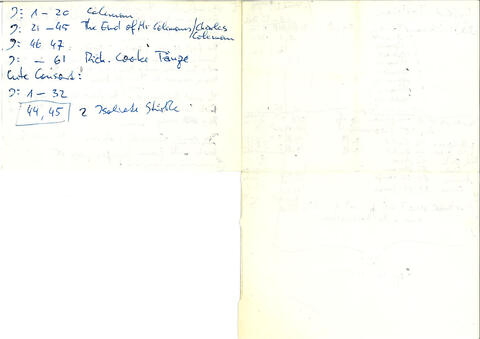 D: 1 – 20 Coleman
D: 21 – 45 The End of Mr Colemans / Charles Coleman
D: 46 47.
D: – 61 Rich. Cooke Tänze
Lute Consort:
D: 1 – 32
44, 45 2 Isolierte Stücke